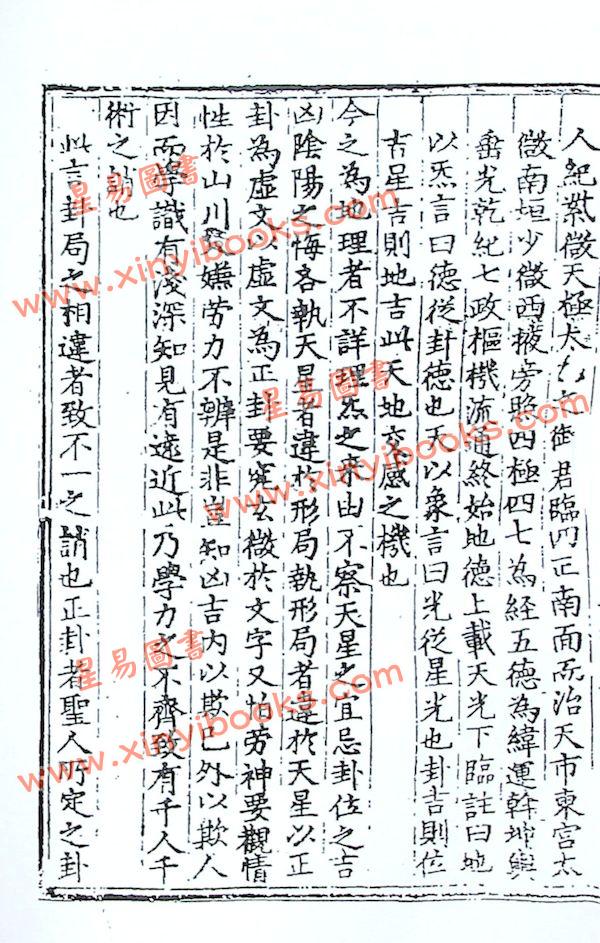 人紀紫微天極太乙之御君臨四正南面而治天市東宮太
微南垣少微西掖旁照四極四七為経五德為緯運斡坤輿
垂光乾紀七政樞機流通終始地德上載天光下臨註曰地
以炁言曰德從卦德也天以象言曰光從星光也卦吉則位
吉星吉則地吉此天地交感之機也
今之為地理者不詳理炁之来由不察天星之宜忌卦位之吉
凶陰陽之悔吝執天星者違於形局執形局者違於天星以正
卦為虛文以虛文為正卦要究玄微於文字又怕劳神要觀情
性於山川又嫌劳力不辨是非豈知凶吉内以欺已外以欺人
因而學識有淺深知見有遠近此乃學力之不齊致有千人千
術之誚也
此言卦局之相違者致不一之誚也正卦者聖人所定之卦
星易圖書
www.xinyibooks.com
星易圖書
www.xinyibooks.com
星易圖書
www.xinyibooks.com